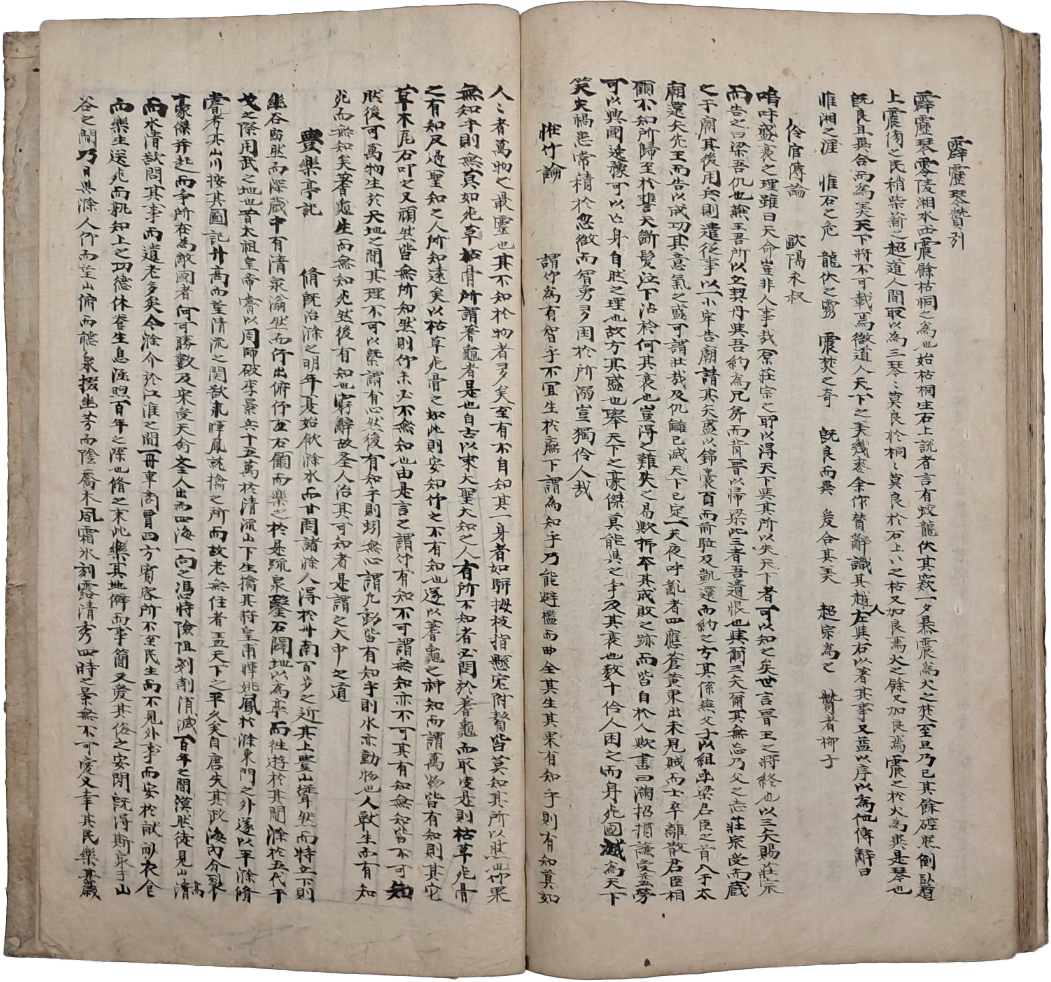 霹靂琴贊引
霹靂琴零陵湘水西震餘枯桐之為也始枯桐生石上說者言有蛟龍伏其窾一夕暴震為火之焚至旦乃已其餘硿然倒臥道
上震旁之民稍柴薪之超道人聞取以為三琴〻莫良於桐〻莫良於石上〻之枯又加良焉火之餘又加良焉震之於火為異是琴也
既良且異合而為美天下將不可載焉微道人天下之美幾喪余作贊辭識其越左與右以著其事又益以序以為他傳辭曰
惟湘之涯 惟石之危 龍伏之靈 震焚之奇 既良而異 爰合其美 超宗為之 贊者柳子
伶官傳論 歐陽永叔
嗚呼盛衰之理雖曰天命豈非人事哉原莊宗之所以得天下與其所以失天下者可以知之矣世言晉王之將終也以三矢賜莊宗
而告之曰梁吾仇也燕王吾所以立契丹與吾約為兄弟而背晉以歸梁此三者吾遺恨也與爾三矢爾其無忘乃父之志莊宗受而藏
之于廟其後用兵則遣從事以一小牢告廟請其矢盛以錦囊負而前驅及凱還而約之方其係燕父子以組函梁君臣之首入于太
廟還矢先王而告以成功其意氣之盛可謂壯哉及仇讎已滅天下已定一夫夜呼亂者四應蒼黃東出未見賊而士卒離散君臣相
顧不知所歸至於誓天斷髮泣下沾於何其衰也豈得之難失之易歟抑本其成敗之跡而皆自於人歟書曰滿招損謙受益勞
可以興國逸豫可以亡身自然之理也故方其盛也舉天下之豪傑莫能與之爭及其衰也數十伶人困之而身死國滅為天下
笑夫禍患常積於忽微而智勇多困於所溺豈獨伶人哉
怪竹論 謂竹為有智乎不宜生於廡下謂為知乎乃能避檻而曲全其生其果有知乎則有知莫如
人〻者萬物之最靈也其不知於物者多矣至有不自知其一身者如駢拇枝指懸疣附贅皆莫知其所以然也竹果
無知乎則無真如死草枯骨所謂蓍龜者是也自古以來大聖大知之人有所不知者必問於蓍龜而取決是則枯草死骨
之有知反過聖知之人所知遠矣以枯草死骨之如此則安知竹之不有知也遂以蓍龜之神知而謂萬物皆有知則其它
草木瓦石叩之又頑然皆無所知然則竹未必不無知也由是言之謂竹有知不可謂無知亦不可其有知無知皆不可知
然後可萬物生於天地之間其理不可以槩謂有心然後有知乎則蚓無心謂凡動皆有知乎則水亦動物也人獸生而有知
死而無知矣蓍龜生而無知死然後有知也窮辭故圣人治其可知者是謂之大中之道
豐樂亭記 脩既治滁之明年夏始飲滁水而甘問諸滁人得於州南百步之近其上豐山聳然而特立下則
幽谷窈然而深藏中有清泉滃然而仰出俯仰左右顧而樂之於是疏泉鑿石闢地以為亭而徃遊於其間滁於五代干
戈之際用武之地也昔太祖皇帝嘗以周師破李景兵十五萬於清流山下生擒其將皇甫暉姚鳳於滁東門之外遂以平滁脩
嘗考其山川按其圖記升高而望清流之関欲求暉鳳就擒之所而故老無在者蓋天下之平久矣自唐失其政海內分裂
豪傑并起而爭所在為敵國者何可勝數及宋受天命圣人出而四海一向之憑恃險阻剗削消滅百年之間漠然徒見山高
而水清欲問其事而遺老多矣今滁介於江淮之間舟車商賈四方賓客所不至民生而不見外事而安於畎畝衣食
而樂生送死而孰知上之功德休養生息涵煦百年之深也脩之來此樂其地僻而事簡又愛其俗之安閑既得斯泉于山
谷之間乃日與滁人仰而望山俯而聽泉掇幽芳而陰喬木風霜氷刻露清秀四時之景無不可愛又幸其民樂其歲